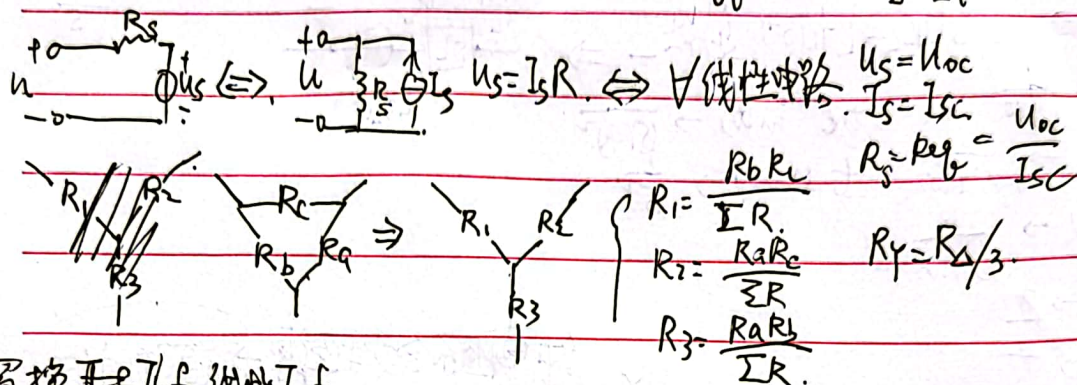 Rs
+ u − + us − ⇔ + u − Rs Is us = IsR ⇔ ∀线性电路. us = uoc
Is = Isc
Rs = Req = uoc/Isc
R1 R2 R3
Rc Rb Ra ⇒ R1 R2 R3
R1 = RbRc/ΣR.
R2 = RaRc/ΣR
R3 = RaRb/ΣR.
RY = RΔ/3.